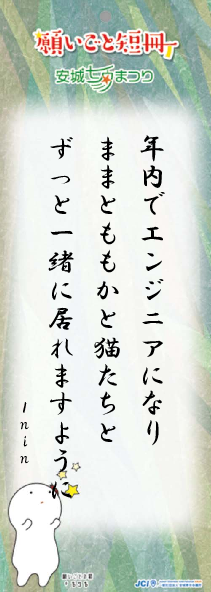 願いごと短冊
安城七夕まつり
年内でエンジニアになり
ままとももかと猫たちと
ずっと一緒に居れますように
1nin
JCI